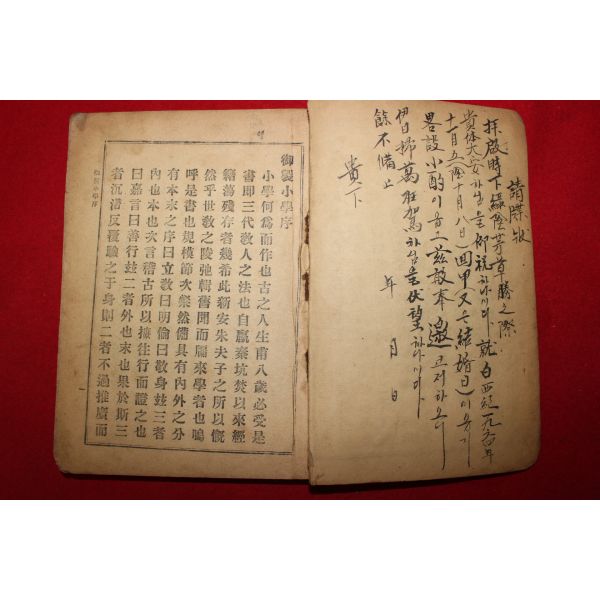 請牒狀
拜啟時下綠陰芳草勝之際
貴体大安하심을仰祝하나이다 就白西紀一九六 年
十一月五日(陰十月八日)回甲(又는結婚日)이옵기
畧設小酌이옵 茲敢奉邀코저하오니
伊日掃萬枉駕하심을伏望하나이다
餘不備上
年 月 日
貴下
御製小學序
小學何爲而作也古之人生甫八歲必受是
書即三代敎人之法也自嬴秦坑焚以來經
籍蕩殘存者幾希此新安朱夫子之所以慨
然乎世敎之陵弛輯舊聞而牖來學者也嗚
呼是書也規模節次粲然備具有內外之分
有本末之序曰立敎曰明倫曰敬身玆三者
內也本也次言稽古所以摭往行而證之也
曰嘉言曰善行玆二者外也末也果於斯三
者沉潛反覆驗之于身則二者不過推廣而
御製小學序